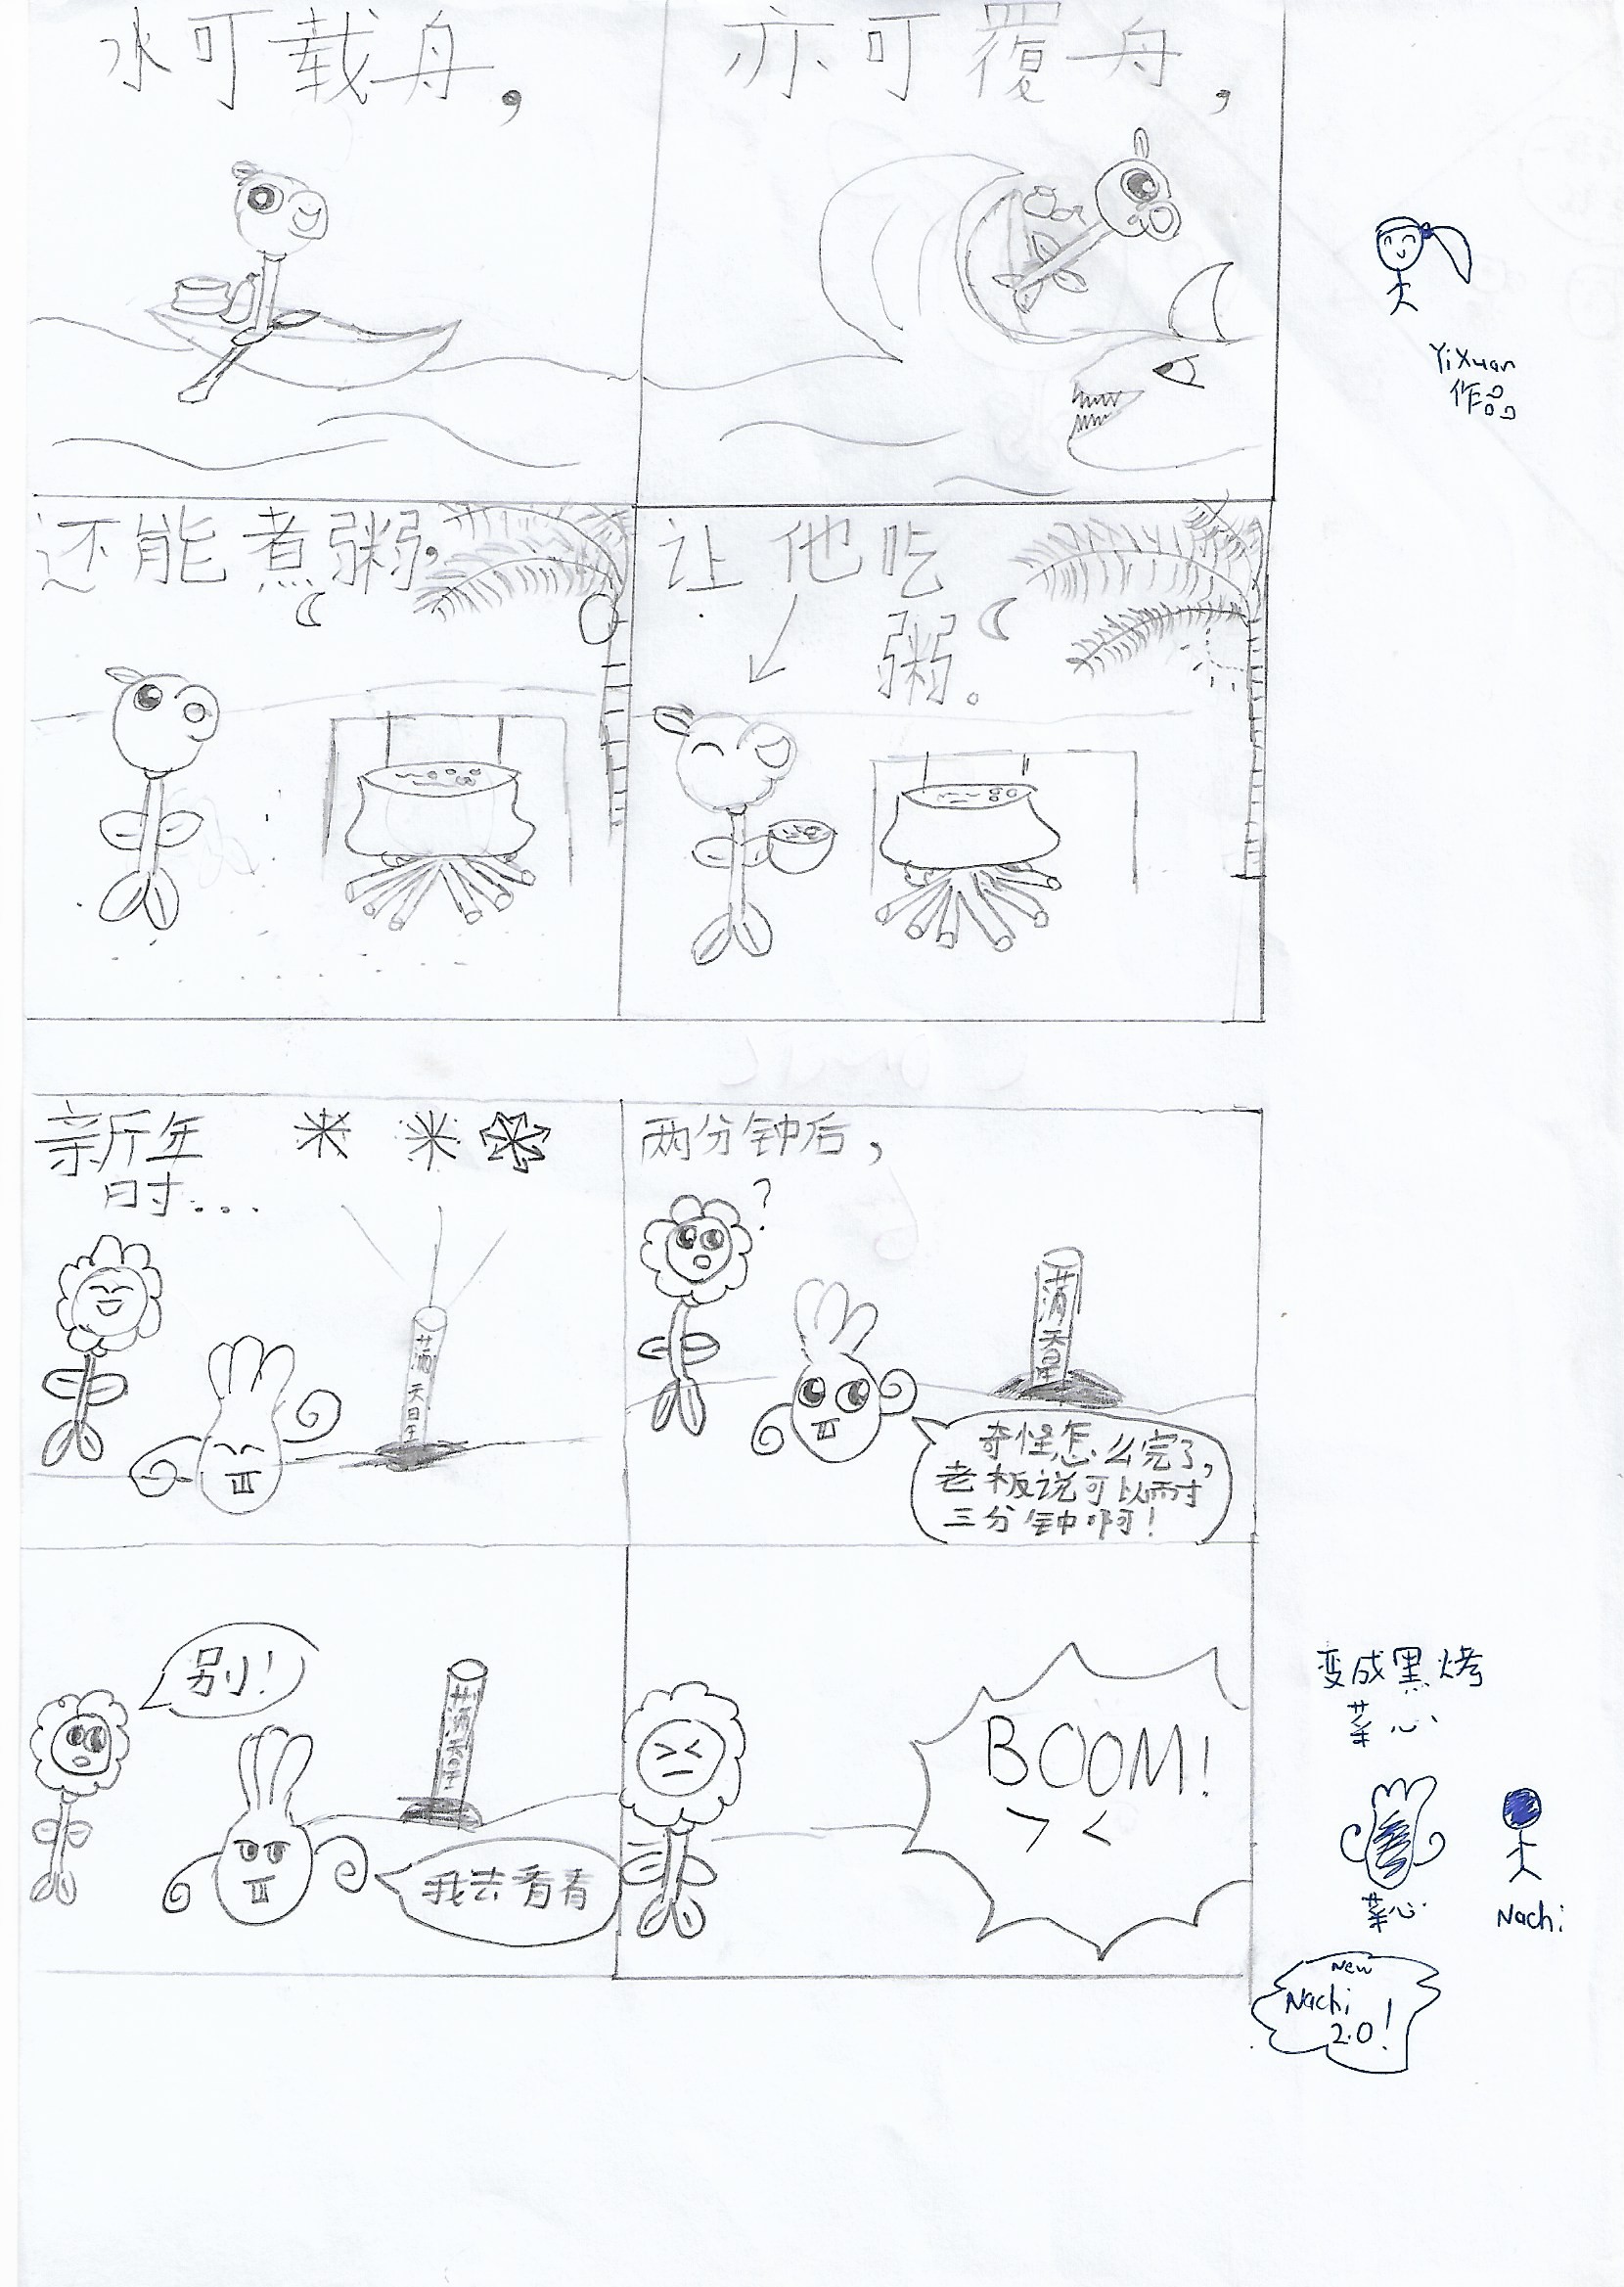 水可载舟，
亦可覆舟，
YiXuan
作品
还能煮粥，
让他吃
粥。
新年
时...
满天星
两分钟后，
?
满天星
奇怪怎么完了，
老板说可以耐
三分钟啊！
别！
满天星
我去看看
BOOM!
变成黑烤
菜心
菜心
Nachi
New
Nachi
2.0!